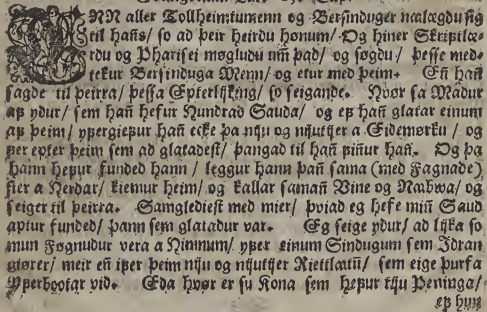 ENN aller Tollheimtumenn og Bersinduger nælægdu sig
til hans/ so ad þeir heirdu honum/ Og hiner Skriptlæ-
rdu og Pharisei møgludu um þad/ og søgdu/ þesse med-
tekur Bersinduga Menn/ og etur med þeim. Eñ hañ
sagde til þeirra/ þessa Epterlijking/ so seigande. Hvør sa Madur
af ydur/ sem hañ hefur Hundrad Sauda/ og ef hañ glatar einum
af þeim/ yfergiefur hañ ecke þa niju og nijutiger a Eidemørku/ og
fer epter þeim sem ad glatadest/ þangad til hañ finur hañ. Og þa
hann hefur funded hann/ leggur hann þañ sama (med Fagnade)
sier a Herdar/ kiemur heim/ og kallar samañ Vine og Nabwa/ og
seiger til þeirra. Samglediest med mier/ þviad eg hefe miñ Saud
aptur funded/ þann sem glatadur var. Eg seige ydur/ ad lijka so
mun Føgnudur vera a Himnum/ yfer einum Sindugum sem Idran
giørер/ meir eñ ifer þeim niju og nijutiger Riettlatu/ sem eige þurfa
Yferbootar vid. Eda hvør er su Kona sem hefur tiju Peninga/
ef hun